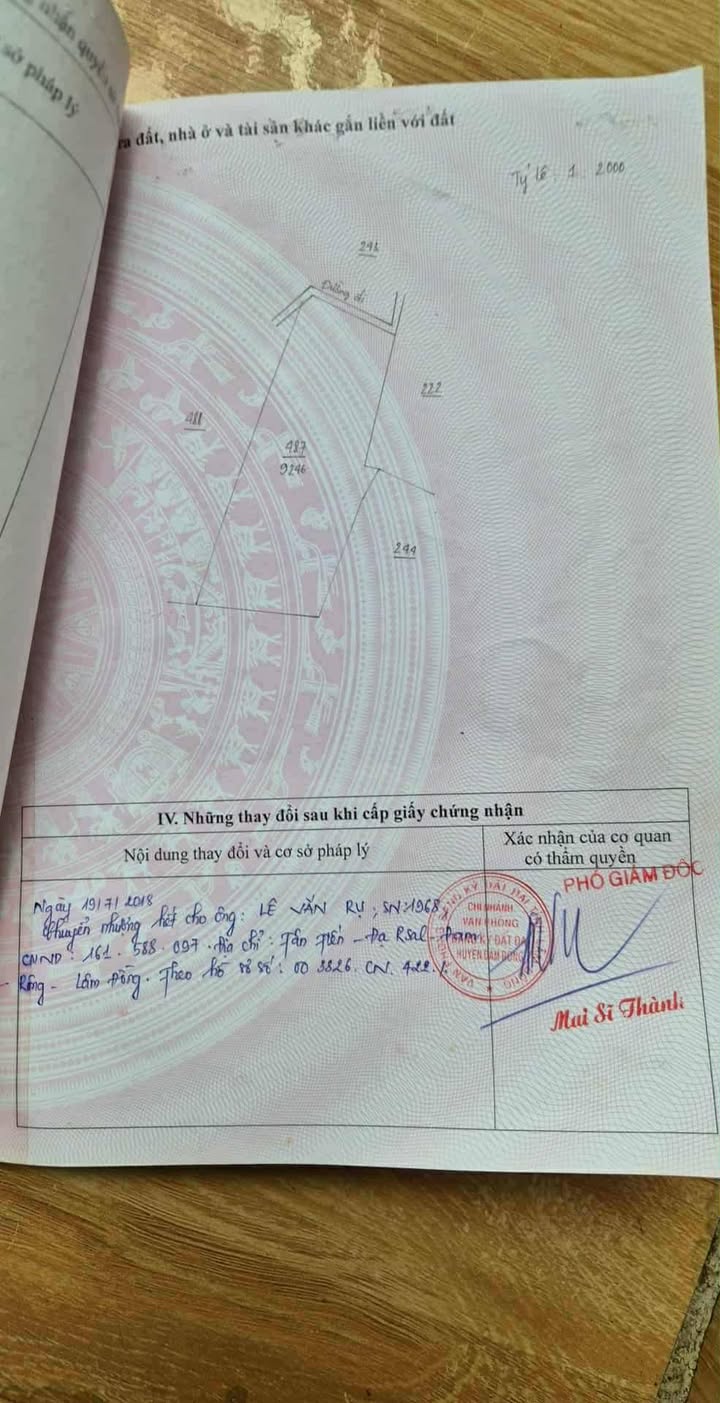 nhận quyền
sở pháp lý
đất, nhà ở và tài sản khác gắn liền với đất
Tỷ lệ 1 2000
Đường đi
222
487
9246
244
IV. Những thay đổi sau khi cấp giấy chứng nhận
Nội dung thay đổi và cơ sở pháp lý
Xác nhận của cơ quan
có thẩm quyền
PHÓ GIÁM ĐỐC
Ngày 19/7/2018
Chuyển nhượng hết cho ông: LÊ VĂN RỤ; SN:1968
CMND: 161.588.097. Địa chỉ: Tân Tiến - Đạ Rsal - Đam
Rông - Lâm Đồng. Theo hồ sơ số: 003826.CN.422.
CHI NHÁNH
VĂN PHÒNG
ĐĂNG KÝ ĐẤT ĐAI
HUYỆN ĐAM RÔNG
Mai Sĩ Thành